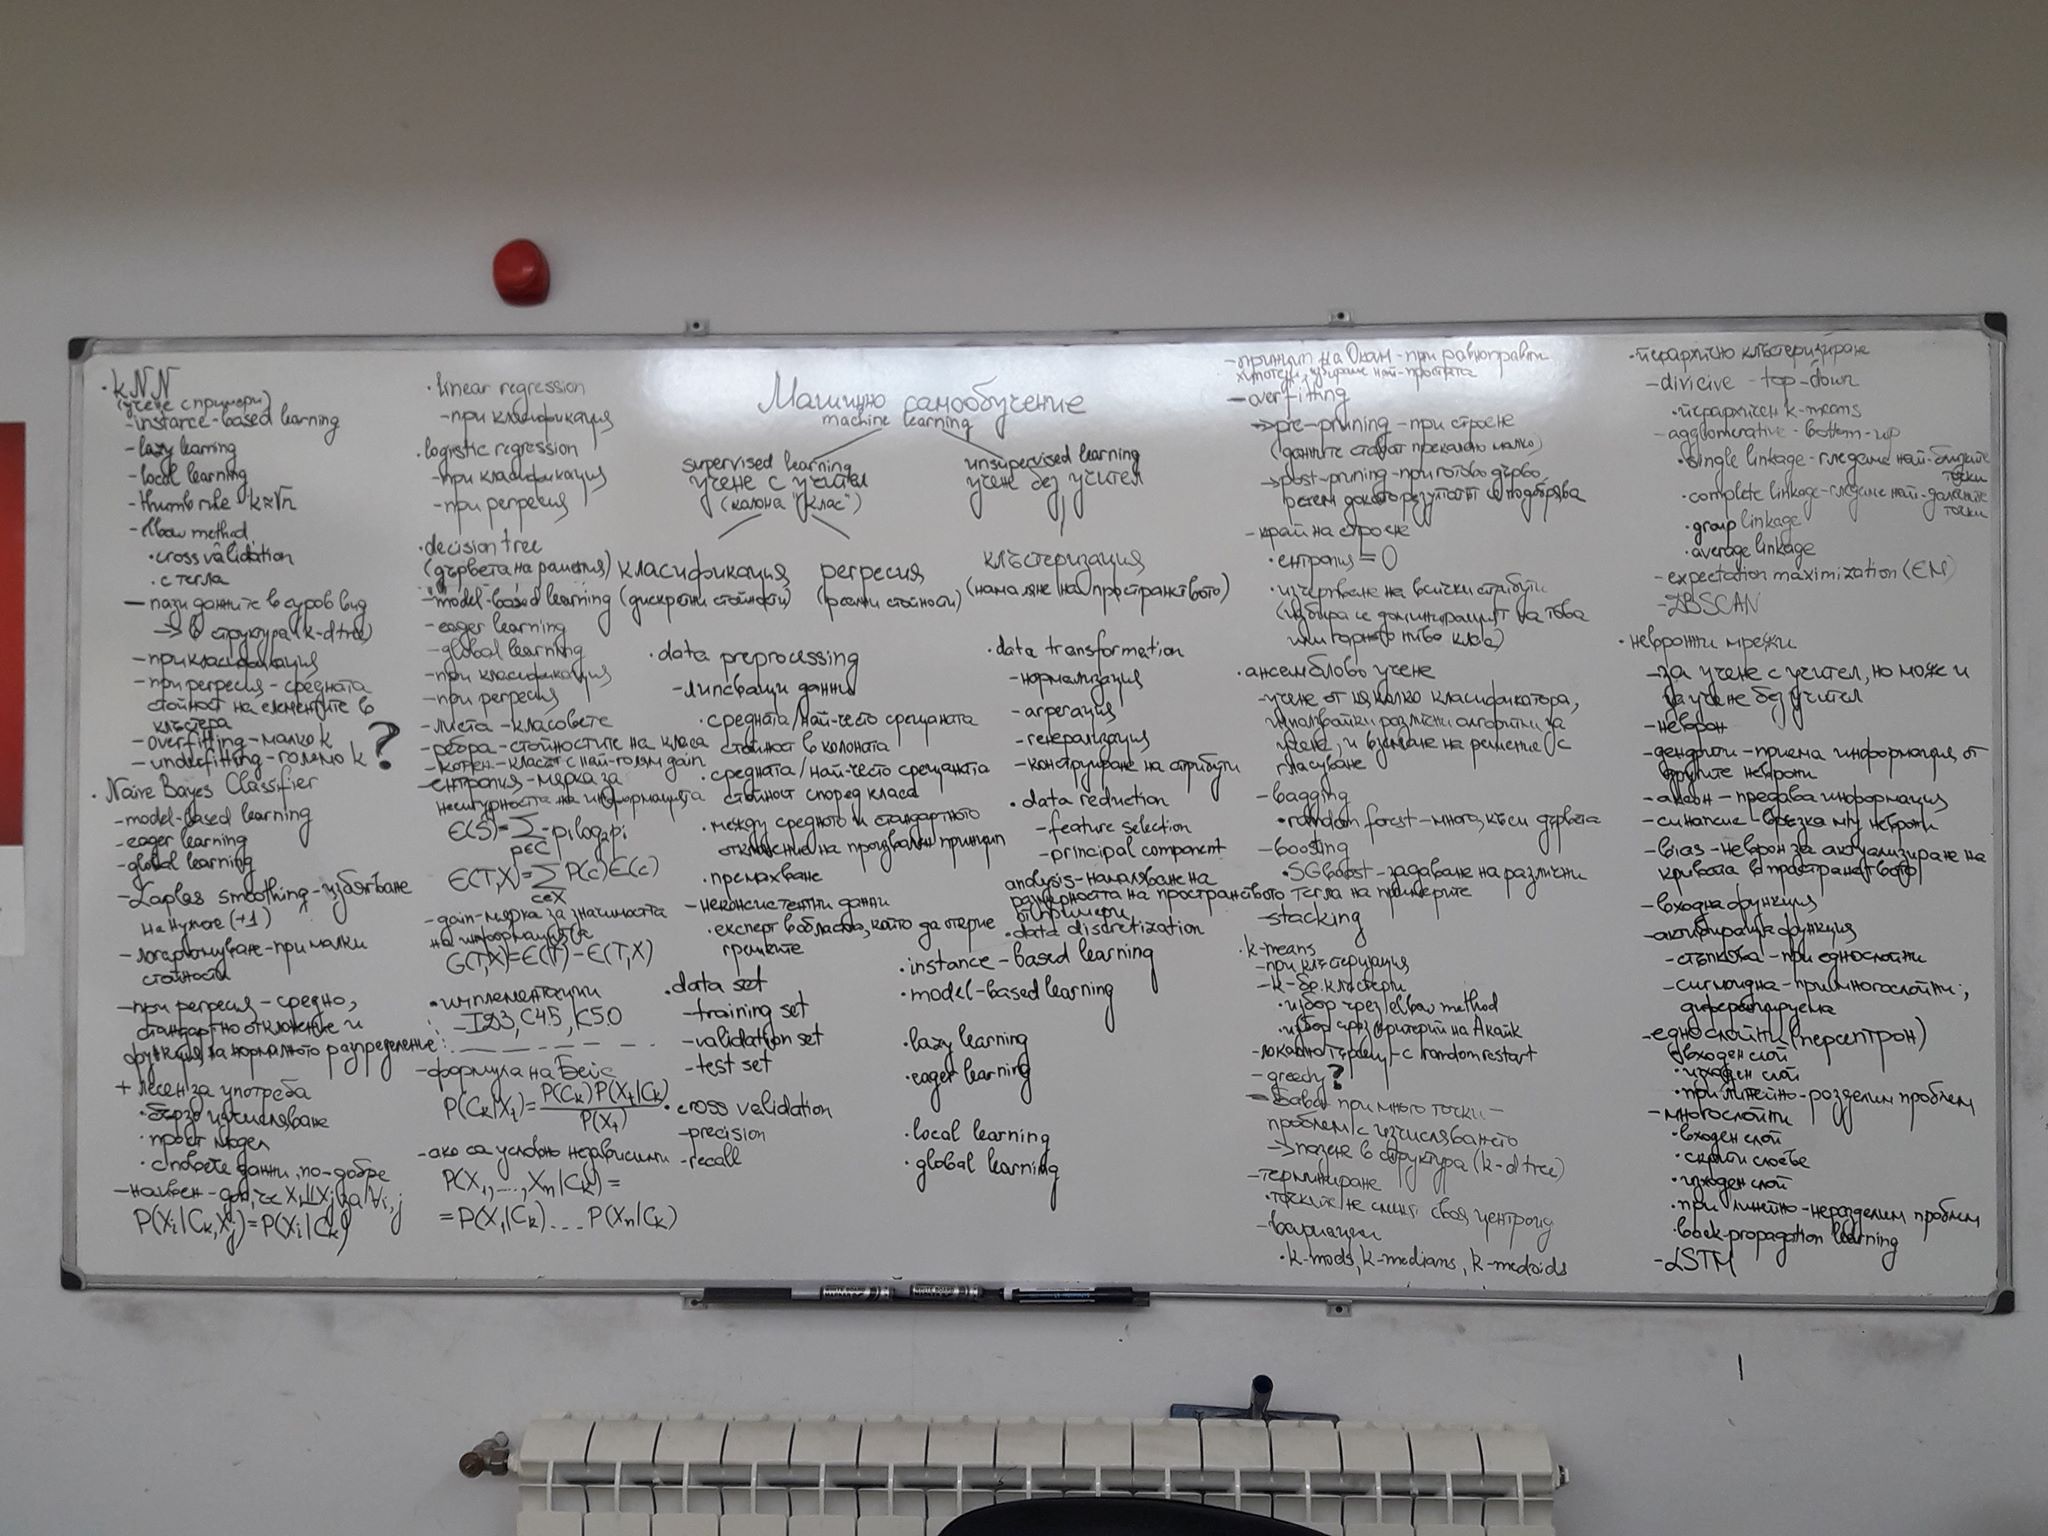 Машинно самообучение
machine learning
supervised learning
учене с учител
(колона "клас")
unsupervised learning
учене без учител
класификация
(дискретни стойности)
регресия
(реални стойности)
клъстеризация
(намаляне на пространството)
· kNN
(учене с примери)
- instance-based learning
- lazy learning
- local learning
- thumb rule k≈√n
- elbow method
· cross validation
· с тегла
- пази данните в суров вид
-> в структура (k-d tree)
- при класификация
- при регресия - средната
стойност на елементите в
клъстера
- overfitting - малко k
- underfitting - голямо k ?
· Naive Bayes Classifier
- model-based learning
- eager learning
- global learning
- Laplas smoothing - избягване
на нулите (+1)
- логаритмуване - при малки
стойности
- при регресия - средно,
стандартно отклонение и
функция на нормалното разпределение
+ лесен за употреба
· бързо изчисляване
· прост модел
· с повече данни, по-добре
- наивен - доп, че Xi⫫Xj за ∀i,j
P(Xi|Ck,Xj)=P(Xi|Ck)
· linear regression
- при класификация
· logistic regression
- при класификация
- при регресия
· decision tree
(дървета на решения)
- model-based learning
- eager learning
- global learning
- при класификация
- при регресия
- листа - класовете
- ребра - стойностите на класа
- корен - класът с най-голям gain
- ентропия - мярка за
несигурността на информацията
E(S)=∑ -pi log2 pi
p∈C
E(T,X)=∑ P(c)E(c)
c∈X
- gain - мярка за значимостта
на информацията
G(T,X)=E(T)-E(T,X)
· имплементации
- ID3, C4.5, C5.0
- формула на Бейс
P(Ck|Xi)= P(Ck)P(Xi|Ck)
P(Xi)
- ако са условно независими
P(X1,...,Xn|Ck)=
=P(X1|Ck)...P(Xn|Ck)
· data preprocessing
- липсващи данни
· средната/най-често срещаната
стойност в колоната
· средната/най-често срещаната
стойност според класа
· между средното и стандартното
отклонение на произволен принцип
· премахване
- неконсистентни данни
· експерт в областта, който да открие
грешките
· data set
- training set
- validation set
- test set
· cross validation
- precision
- recall
· data transformation
- нормализация
- агрегация
- генерализация
- конструиране на атрибути
· data reduction
- feature selection
- principal component
analysis - намаляване на
размерността на пространството
от примери
· data discretization
· instance-based learning
· model-based learning
· lazy learning
· eager learning
· local learning
· global learning
- принцип на Окам - при равноправни
хипотези, избираме най-простата
- overfitting
-> pre-pruning - при строене
(данните стават прекалено малко)
-> post-pruning - при готово дърво
режем докато резултатът се подобрява
- край на строене
· ентропия = 0
· изчерпване на всички атрибути
(избира се доминиращият на това
или горното ниво клас)
· ансамблово учене
- учене от няколко класификатора,
използвайки различни алгоритми за
учене, и вземане на решение с
гласуване
- bagging
· random forest - много, къси дървета
- boosting
· SGboost - задаване на различни
тегла на примерите
- stacking
· k-means
- при клъстеризация
- k - бр. клъстери
· избор чрез elbow method
· избор чрез критерий на Акайк
- локално търсещ - с random restart
- greedy ?
- Бавен при много точки -
проблем с изчисляването
-> пазене в структура (k-d tree)
- терминиране
· точките не сменят своя центроид
- вариации
· k-mods, k-medians, k-medoids
· йерархично клъстеризиране
- divicive - top-down
· йерархичен k-means
- agglomerative - bottom-up
· single linkage - гледаме най-близките
точки
· complete linkage - гледаме най-далечните
точки
· group linkage
· average linkage
- expectation maximization (EM)
- DBSCAN
· невронни мрежи
- за учене с учител, но може и
за учене без учител
- неврон
- дендрити - приема информация от
другите неврони
- аксон - предава информация
- синапси - връзка м/у неврони
- bias - неврон за актуализиране на
кривата в пространството
- входна функция
- активираща функция
- стъпкова - при еднослойни
- сигмоидна - при многослойни;
диференцируема
- еднослойни (персептрон)
· входен слой
· изходен слой
· при линейно-разделим проблем
- многослойни
· входен слой
· скрити слоеве
· изходен слой
· при линейно-неразделим проблем
· back-propagation learning
- LSTM